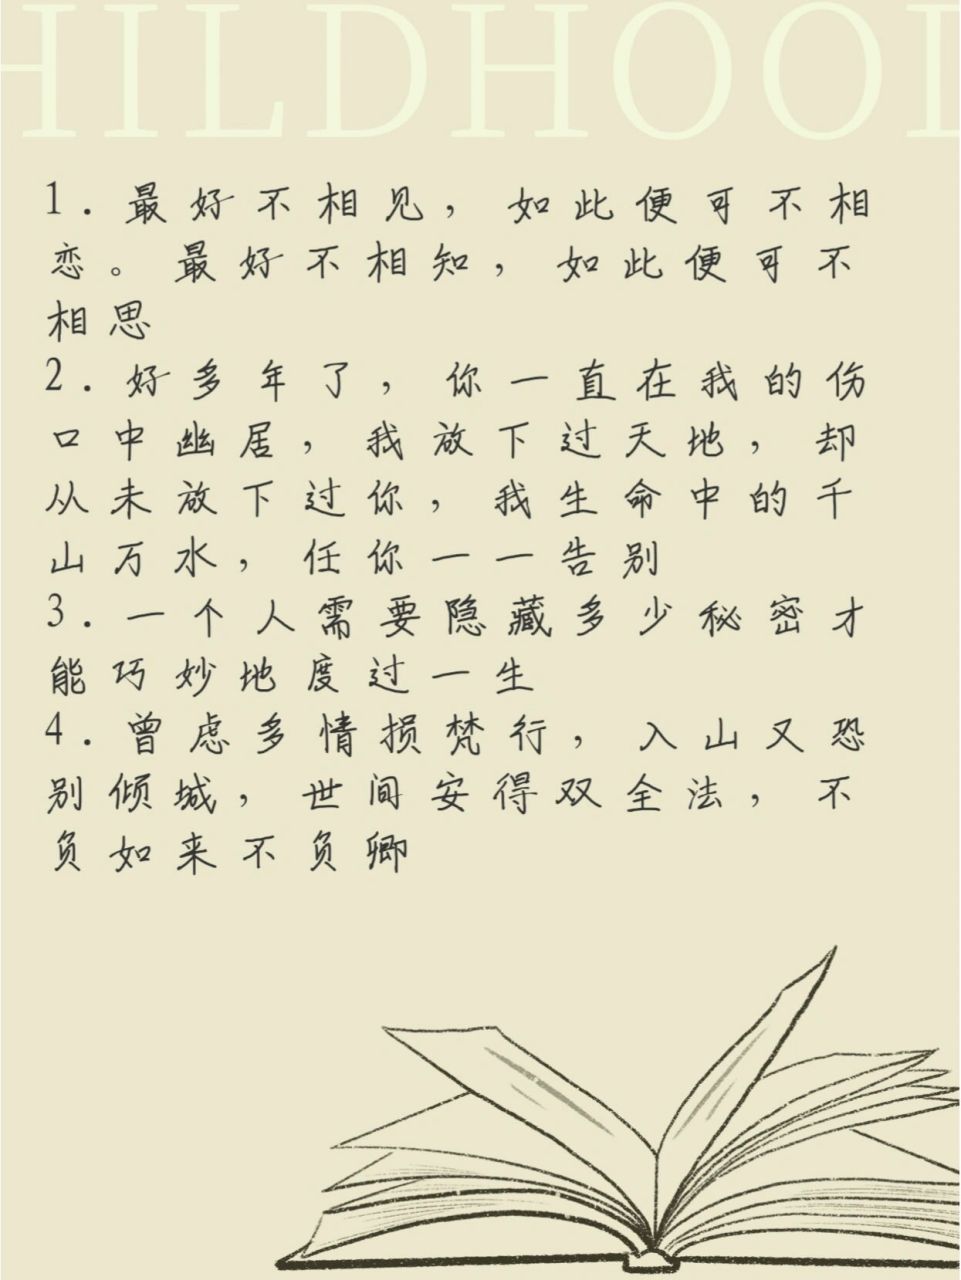 HILDHOOD
1.最好不相见，如此便可不相
恋。最好不相知，如此便可不
相思
2.好多年了，你一直在我的伤
口中幽居，我放下过天地，却
从未放下过你，我生命中的千
山万水，任你一一告别
3.一个人需要隐藏多少秘密才
能巧妙地度过一生
4.曾虑多情损梵行，入山又恐
别倾城，世间安得双全法，不
负如来不负卿